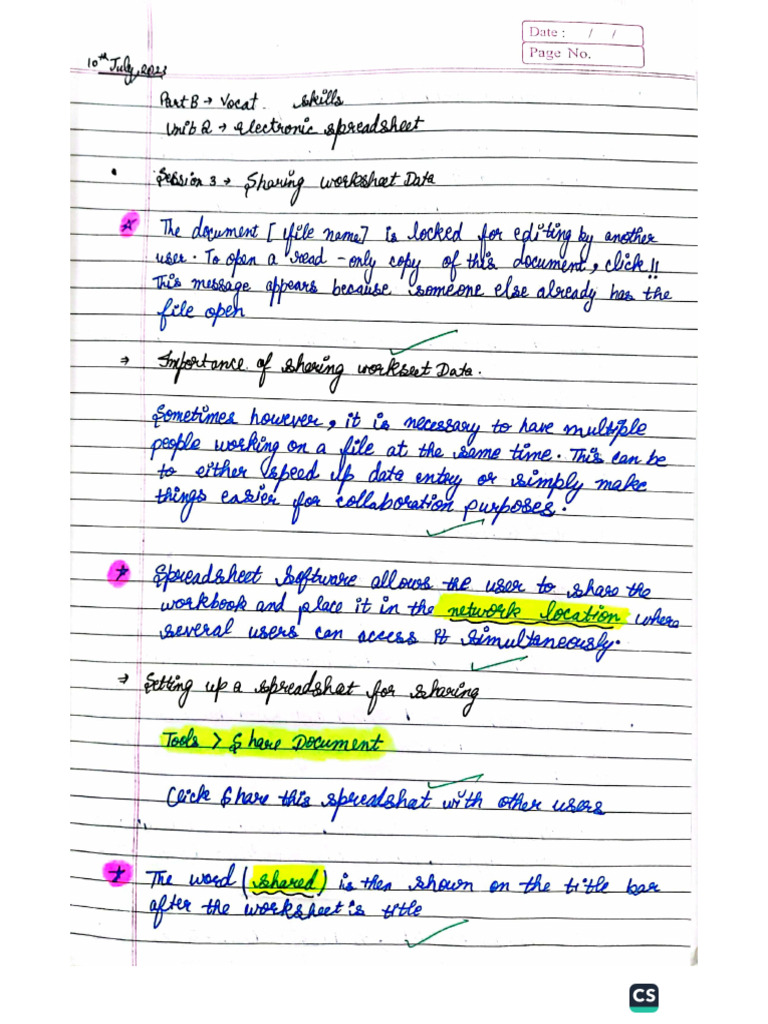 Date : / /
Page No.
10th July, 2023
Part B → Vocat. skills
Unit 2 → electronic spreadsheet
Session 3 → Sharing worksheet Data
The document [file name] is locked for editing by another
user. To open a read-only copy of this document, click!!
This message appears because someone else already has the
file open
→ Importance of sharing workseet Data.
Sometimes however, it is necessary to have multiple
people working on a file at the same time. This can be
to either speed up data entry or simply make
things easier for collaboration purposes.
Spreadsheet software allows the user to share the
workbook and place it in the network location where
several users can access it simultaneously.
→ Setting up a spreadshat for sharing
Tools > Share Document
Click Share this spreadshat with other users
The word (shared) is then shown on the title bar
after the worksheet is title
CS